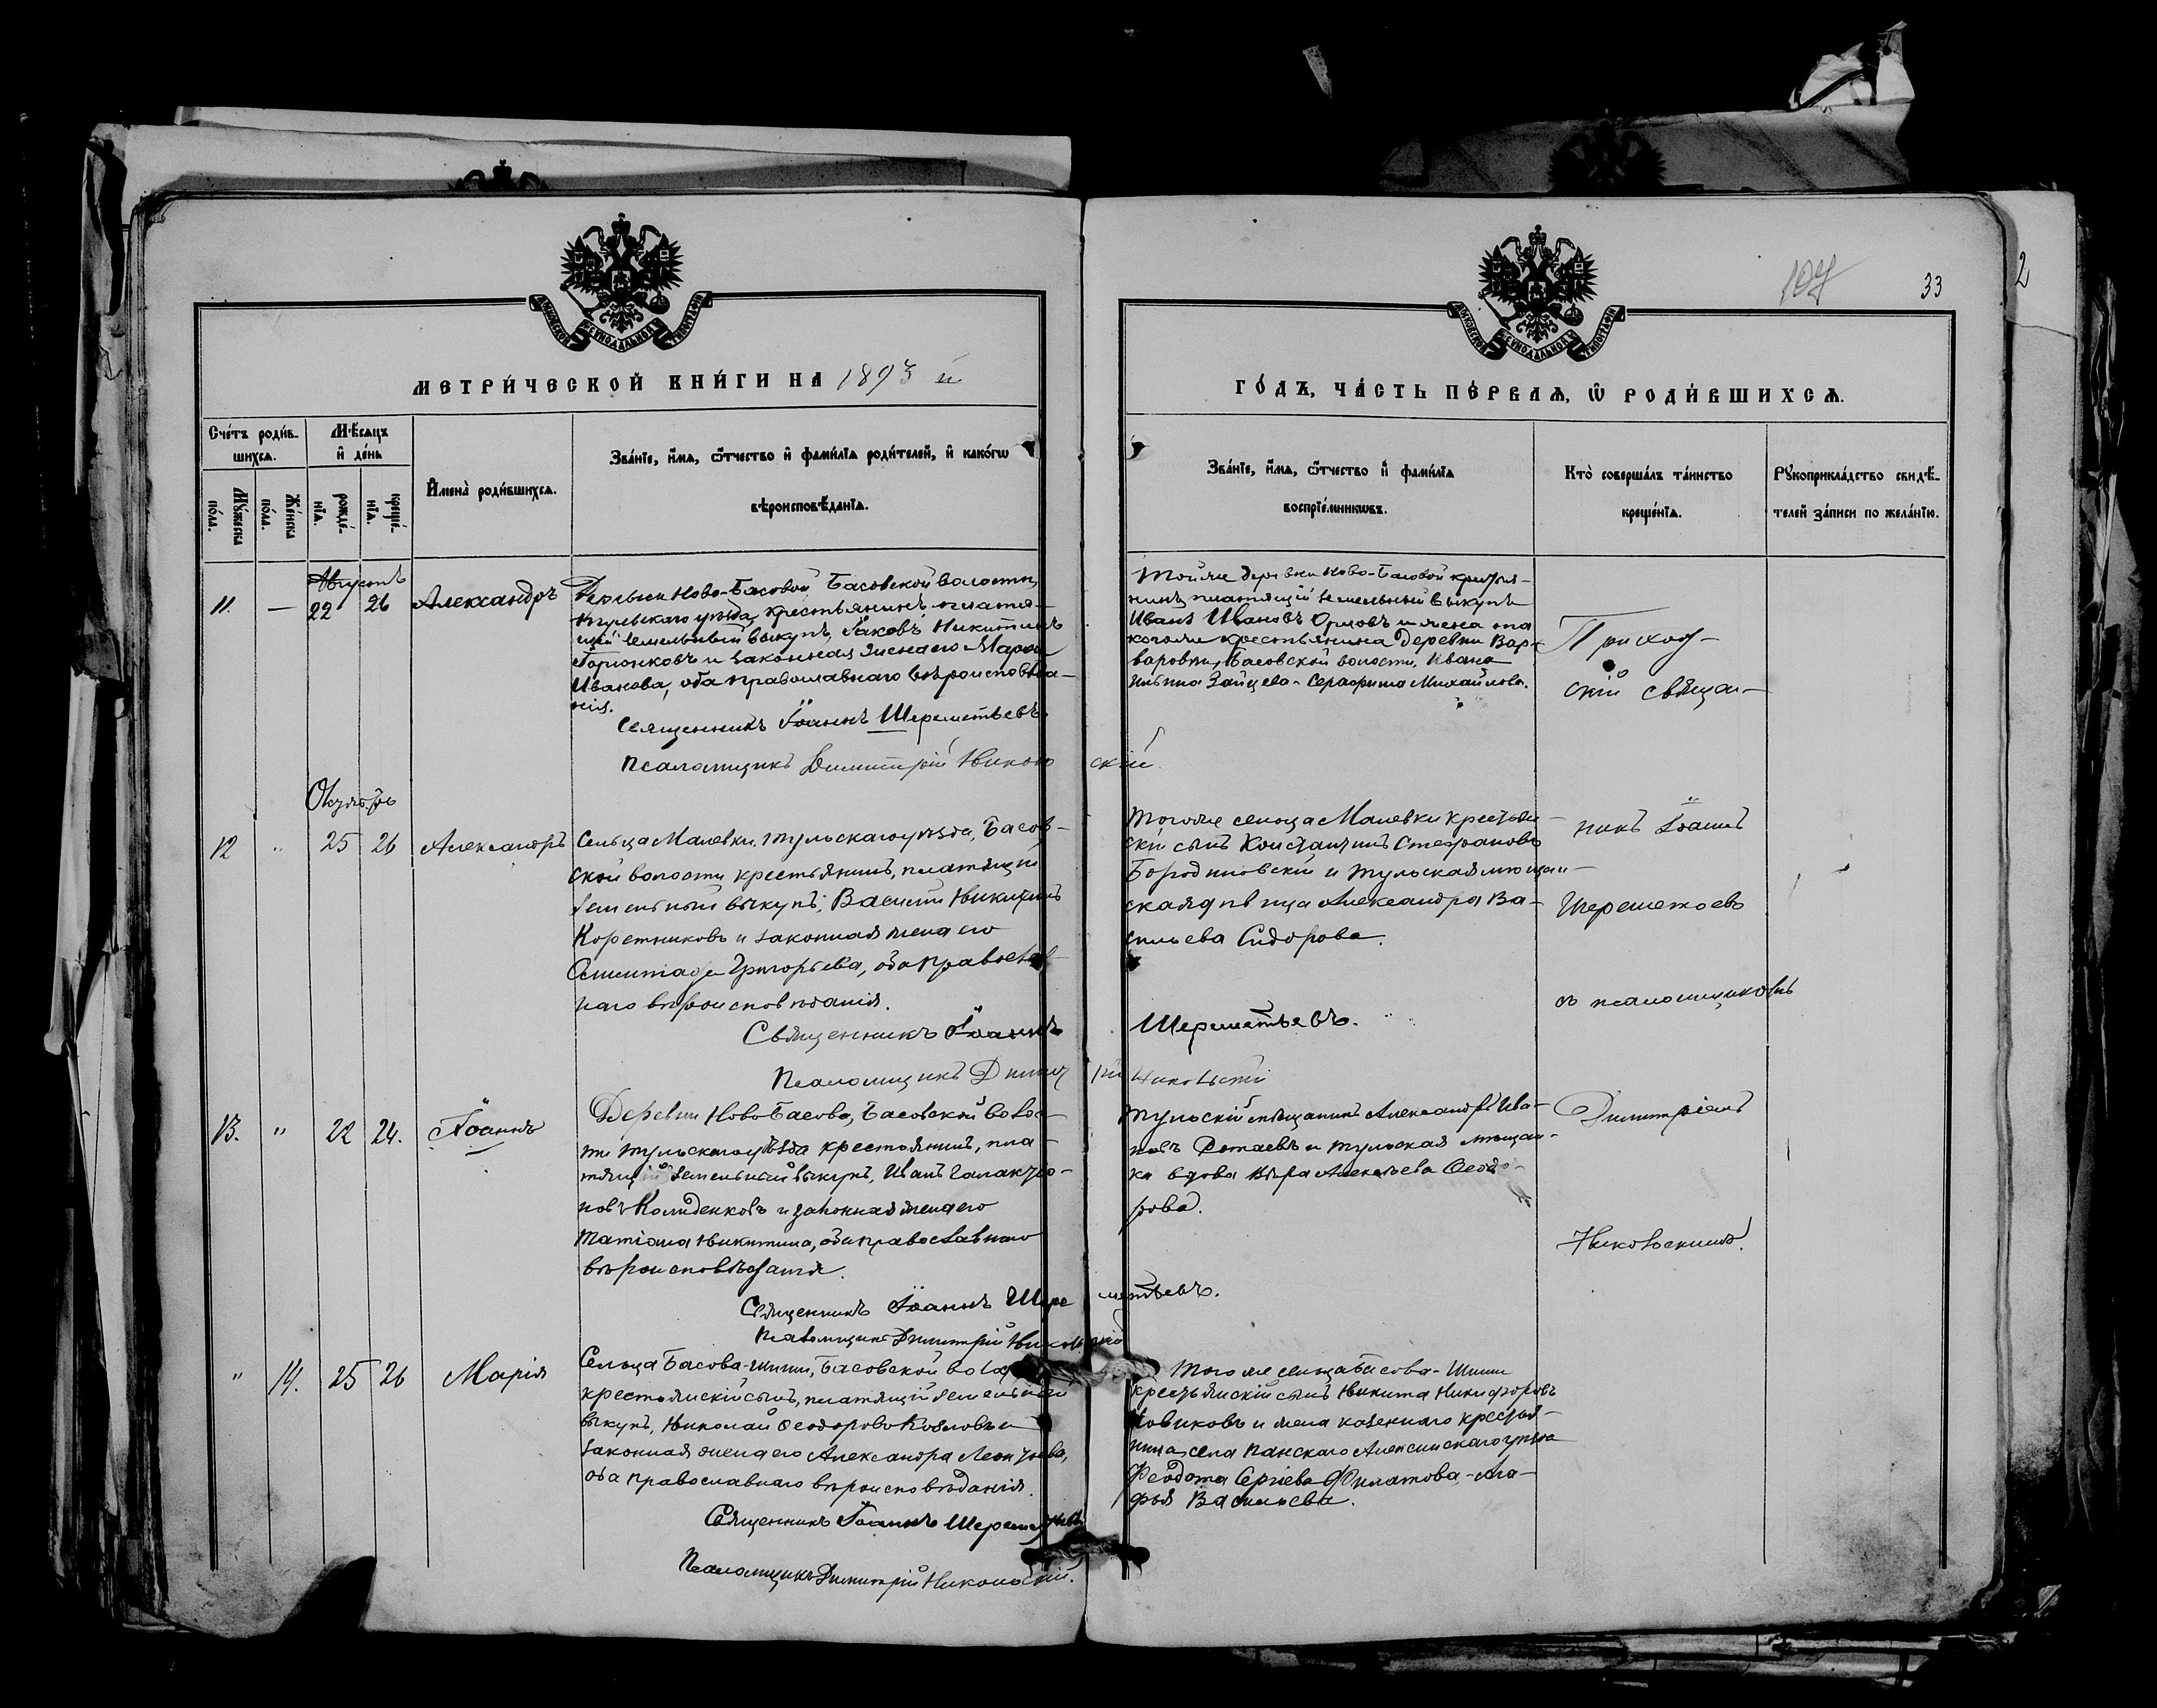 107
33
2
МЕТРИ́ЧЕСКОЙ КНИ́ГИ НА 1893 й
ГО́ДЪ, ЧА́СТЬ ПЕ́РВАѦ, Ѿ РОДИ́ВШИХСѦ.
Сче́тъ роди́в-
шихсѧ.
Мѣ́сѧцъ
и҆ де́нь
Му́жеска
по́ла.
Же́нска
по́ла.
рожде́-
нїѧ.
креще́-
нїѧ.
И҆мена̀ роди́вшихсѧ.
Зва́нїе, и҆́мѧ, ѻ҆́тчество и҆ фами́лїѧ роди́телей, и҆ како́гѡ
вѣроисповѣ́данїѧ.
Зва́нїе, и҆́мѧ, ѻ҆́тчество и҆ фами́лїѧ
воспрїе́мникѡвъ.
Кто̀ соверша́лъ та́инство
креще́нїѧ.
Рꙋкоприкла́дство свидѣ́-
телей за́писи по жела́нїю.
Августъ
11. — 22 26 Александръ
Деревни Ново-Басовой, Басовской волости,
Тульскаго уѣзда, крестьянинъ платя-
щій земельный выкупъ, Іаковъ Никитинъ
и законная жена его Марѳа
Иванова, оба православнаго вѣроисповѣда-
нія.
Священникъ Іоаннъ Шереметьевъ.
Псаломщикъ Димитрій Никольскій
Той же деревни Ново-Басовой крестья-
нинъ платящій земельный выкупъ
Иванъ Ивановъ Орловъ и жена та
когоже крестьянина деревни Вар-
варовки, Басовской волости, Ивана
Ильина Зайцева - Серафима Михайлова.
Приход-
скій священ-
Октябрь
12 " 25 26 Александръ
Сельца Малевки, Тульскаго уѣзда, Басов-
ской волости крестьянинъ, платящій
земельный выкупъ, Василій Никитинъ
Коретниковъ и законная жена его
Григорьева, оба православ-
наго вѣроисповѣданія.
Священникъ Іоаннъ Шереметьевъ.
Псаломщикъ Димитрій Никольскій
Тогоже сельца Малевки крестьян-
скій сынъ Константинъ Стефановъ
Бородиновскій и Тульская мѣщан-
ская дѣвица Александра Ва-
сильева Сидорова.
никъ Іоаннъ
Шереметьевъ
съ псаломщикомъ
13. " 22 24. Іоаннъ
Деревни Ново Басово, Басовской волос-
ти Тульскаго уѣзда крестьянинъ, пла-
тящій земельный выкупъ, Иванъ Галактіо-
новъ и законная жена его
Татіана Никитина, оба православнаго
вѣроисповѣданія.
Священникъ Іоаннъ Шереметьевъ.
Псаломщикъ Димитрій Никольскій
Тульскій мѣщанинъ Александръ Ива-
новъ и Тульская мѣщан-
ка вдова Вѣра Алексѣева Ѳеодо-
рова.
Димитріемъ
Никольскимъ.
" 14. 25 26 Марія
Сельца Басова-Шиши, Басовской волости
крестьянскій сынъ, платящій земельный
выкупъ, Николай Ѳеодоровъ Козловъ и
законная жена его Александра Леонтьева,
оба православнаго вѣроисповѣданія.
Священникъ Іоаннъ Шереметьевъ
Псаломщикъ Димитрій Никольскій.
Тогоже сельца Басова-Шиши
крестьянскій сынъ Никита Никифоровъ
Новиковъ и жена казеннаго крестья-
нина села Панскаго Алексинскаго уѣзда
Ѳеодота Сергіева Филатова - Ага-
фья Васильева.